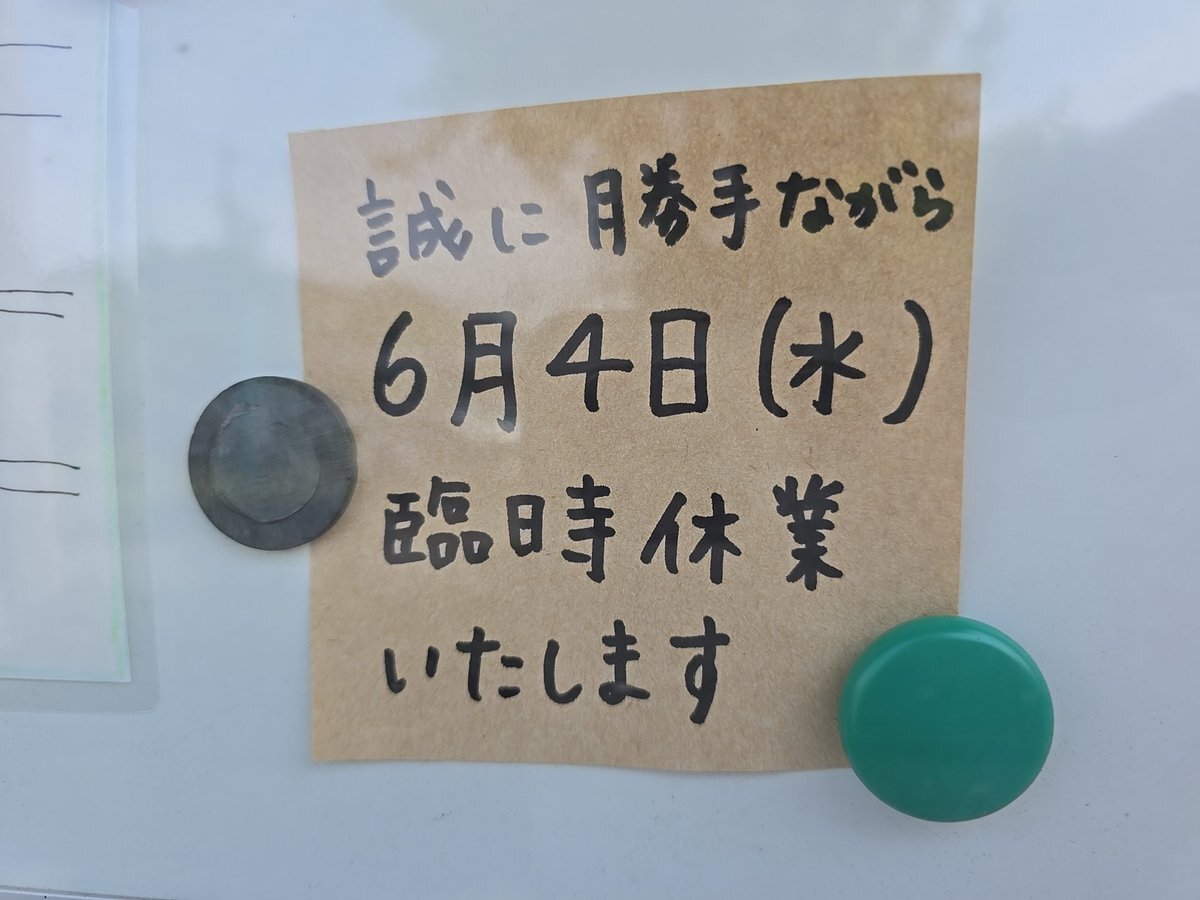 誠に勝手ながら
6月4日(水)
臨時休業
いたします